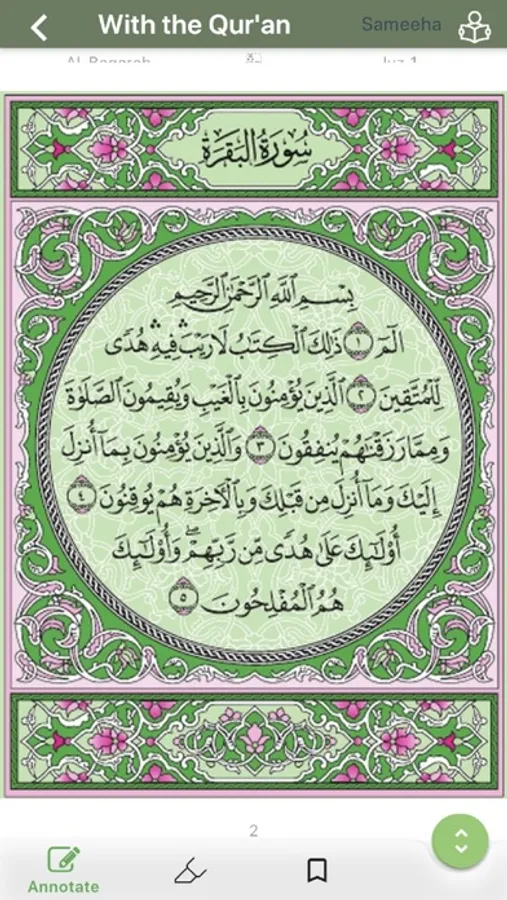 With the Qur'an
Sameeha
سُورَةُ البَقَرَةِ
بِسْمِ ٱللَّهِ ٱلرَّحْمَٰنِ ٱلرَّحِيمِ
الٓمٓ ١ ذَٰلِكَ ٱلْكِتَٰبُ لَا رَيْبَ ۛ فِيهِ ۛ هُدًى
لِّلْمُتَّقِينَ ٢ ٱلَّذِينَ يُؤْمِنُونَ بِٱلْغَيْبِ وَيُقِيمُونَ ٱلصَّلَوٰةَ
وَمِمَّا رَزَقْنَٰهُمْ يُنفِقُونَ ٣ وَٱلَّذِينَ يُؤْمِنُونَ بِمَآ أُنزِلَ
إِلَيْكَ وَمَآ أُنزِلَ مِن قَبْلِكَ وَبِٱلْأَخِرَةِ هُمْ يُوقِنُونَ ٤
أُو۟لَٰٓئِكَ عَلَىٰ هُدًى مِّن رَّبِّهِمْ ۖ وَأُو۟لَٰٓئِكَ
هُمُ ٱلْمُفْلِحُونَ ٥
2
Annotate